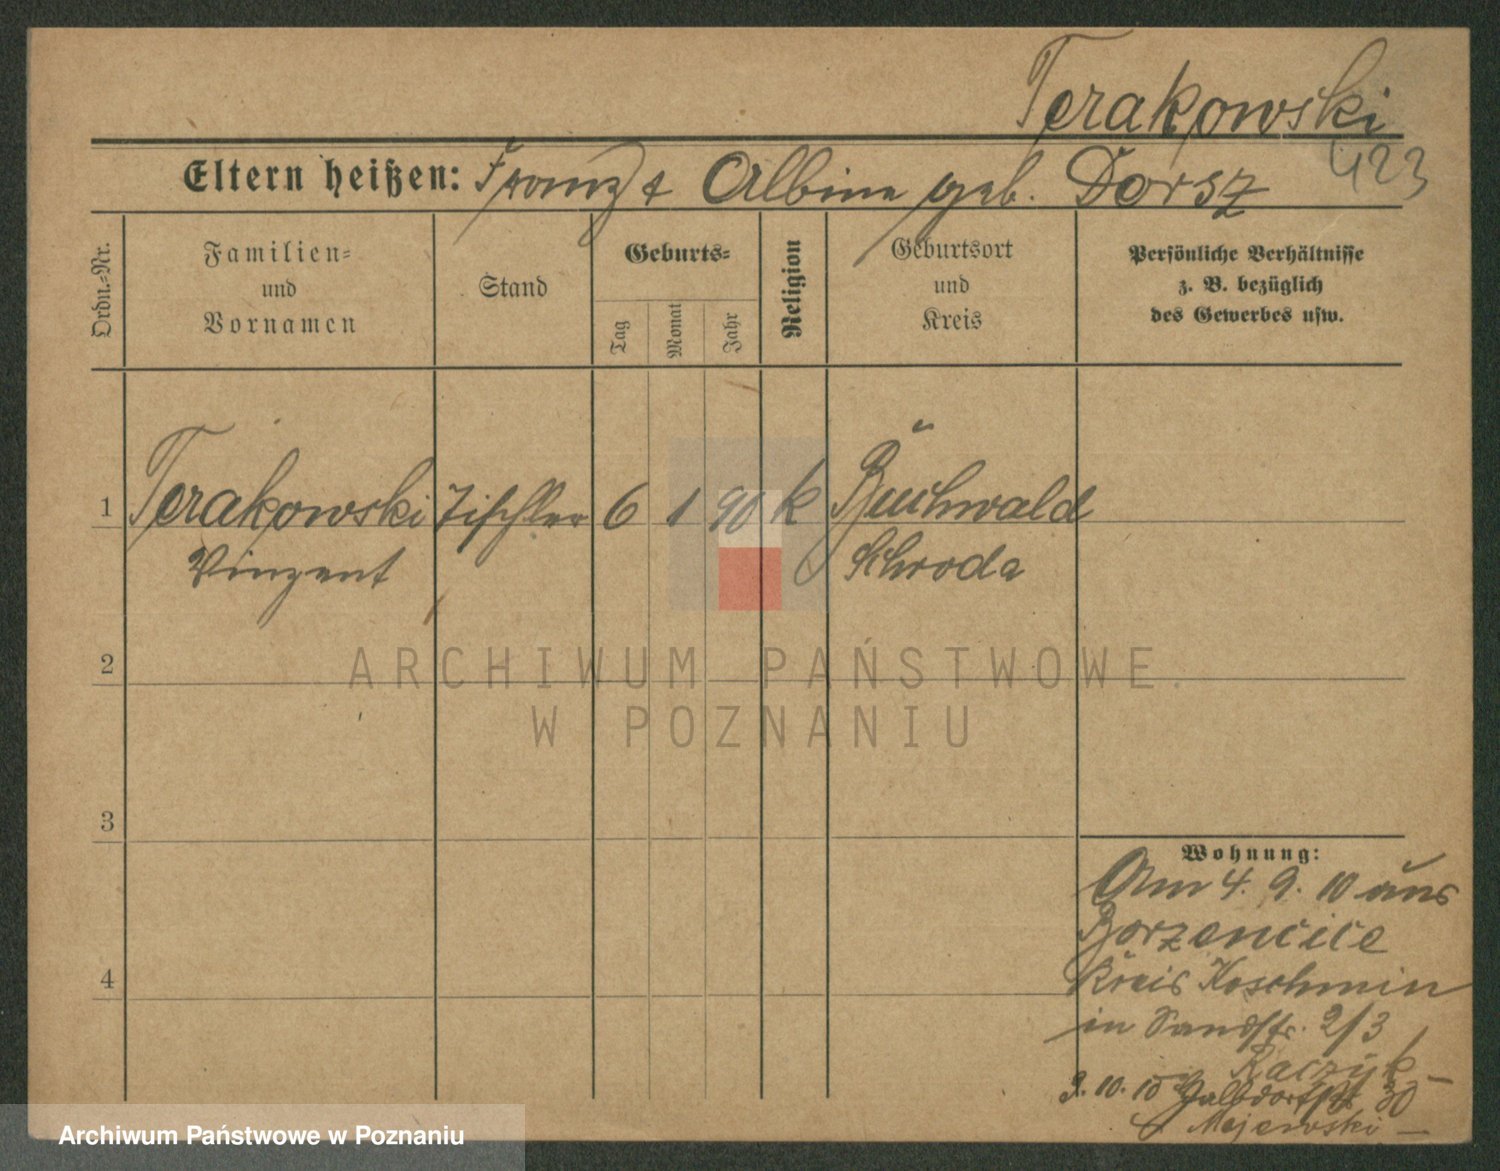 Terakowski
423
Eltern heißen: Franz & Albine geb. Dorsz
Ordn.-Nr.
Familien-
und
Vornamen
Stand
Geburts-
Tag
Monat
Jahr
Religion
Geburtsort
und
Kreis
Persönliche Verhältnisse
z. B. bezüglich
des Gewerbes usw.
1 Terakowski Tischler 6 1 90 k Buchwald
Vinzent Schroda
2
ARCHIWUM PAŃSTWOWE
W POZNANIU
3
4
Wohnung:
Am 4. 9. 10 aus
Borzencice
Kreis Koschmin
in Sandstr. 2/3
Raczyk
3. 10. 10 Halbdorfstr 30
Majewski
Archiwum Państwowe w Poznaniu